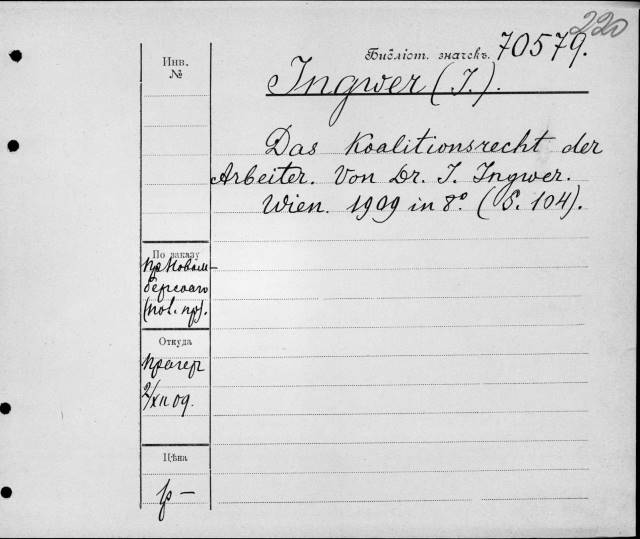 220
Инв.
№
Библіот. значекъ. 70579.
Ingwer (I.).
Das Koalitionsrecht der
Arbeiter. Von Dr. I. Ingwer.
Wien. 1909 in 8º. (S. 104).
По заказу
пр. Новом-
бергскаго
(пол. пр).
Откуда
Прагер
2/XII 09.
Цѣна